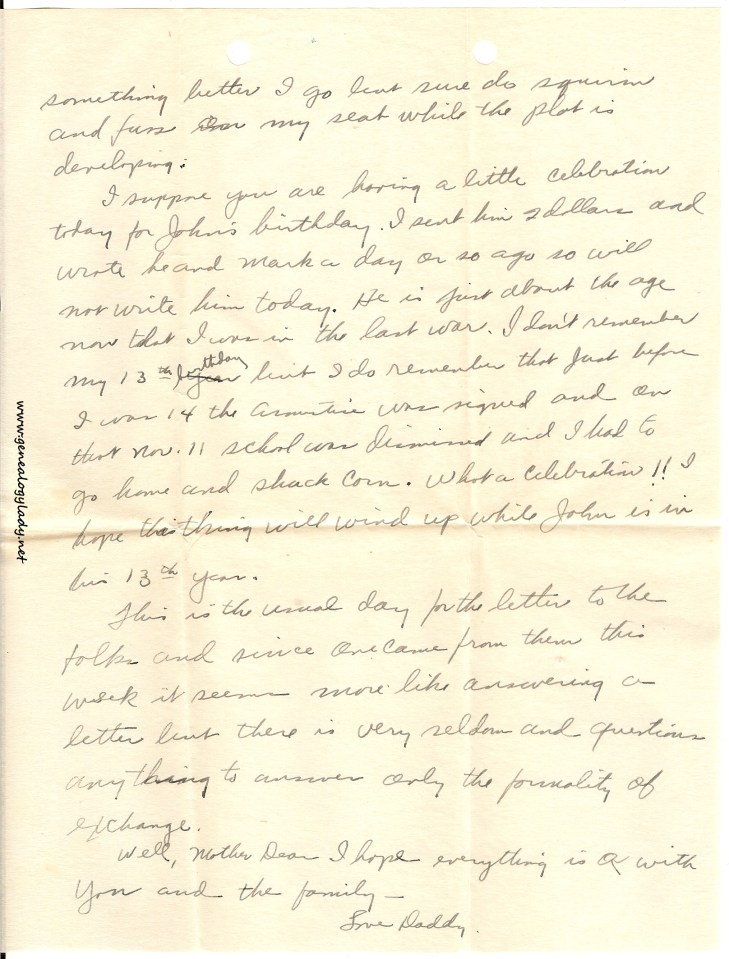 something better I go but sure do squirm
and fuss on my seat while the plot is
developing.
I suppose you are having a little celebration
today for John's birthday. I sent him 2 dollars and
wrote he and Mark a day or so ago so will
not write him today. He is just about the age
now that I was in the last war. I don't remember
my 13th birthday but I do remember that just before
I was 14 the armistice was signed and on
that Nov. 11 school was dismissed and I had to
go home and shuck corn. What a celebration!! I
hope this thing will wind up while John is in
his 13th year.
This is the usual day for the letter to the
folks and since one came from them this
week it seems more like answering a
letter but there is very seldom and questions
anything to answer only the formality of
exchange.
Well, Mother Dear I hope everything is with
you and the family—
Love Daddy.
www.genealogylady.net